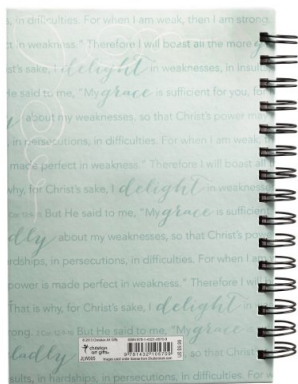 s, in difficulties. For when I am weak, then I am strong.
in weakness." Therefore I will boast all the more g
ist's sake, I delight in weaknesses, in insults
He said to me, "My grace is sufficient for you, for
about my weaknesses, so that Christ's power ma
in persecutions, in difficulties. For when I am weak,
made perfect in weakness." Therefore I will boast all
why, for Christ's sake, I delight in weakness
But He said to me, "My grace is sufficient
dly about my weaknesses, so that Christ's pow
ardships, in persecutions, in difficulties. For when I a
power is made perfect in weakness." Therefor
That is why, for Christ's sake, I delight in
ong. But He said to me, "My grace is
ladly about my weaknesses, so that
sults, in hardships, in persecutions, in difficulties. For w